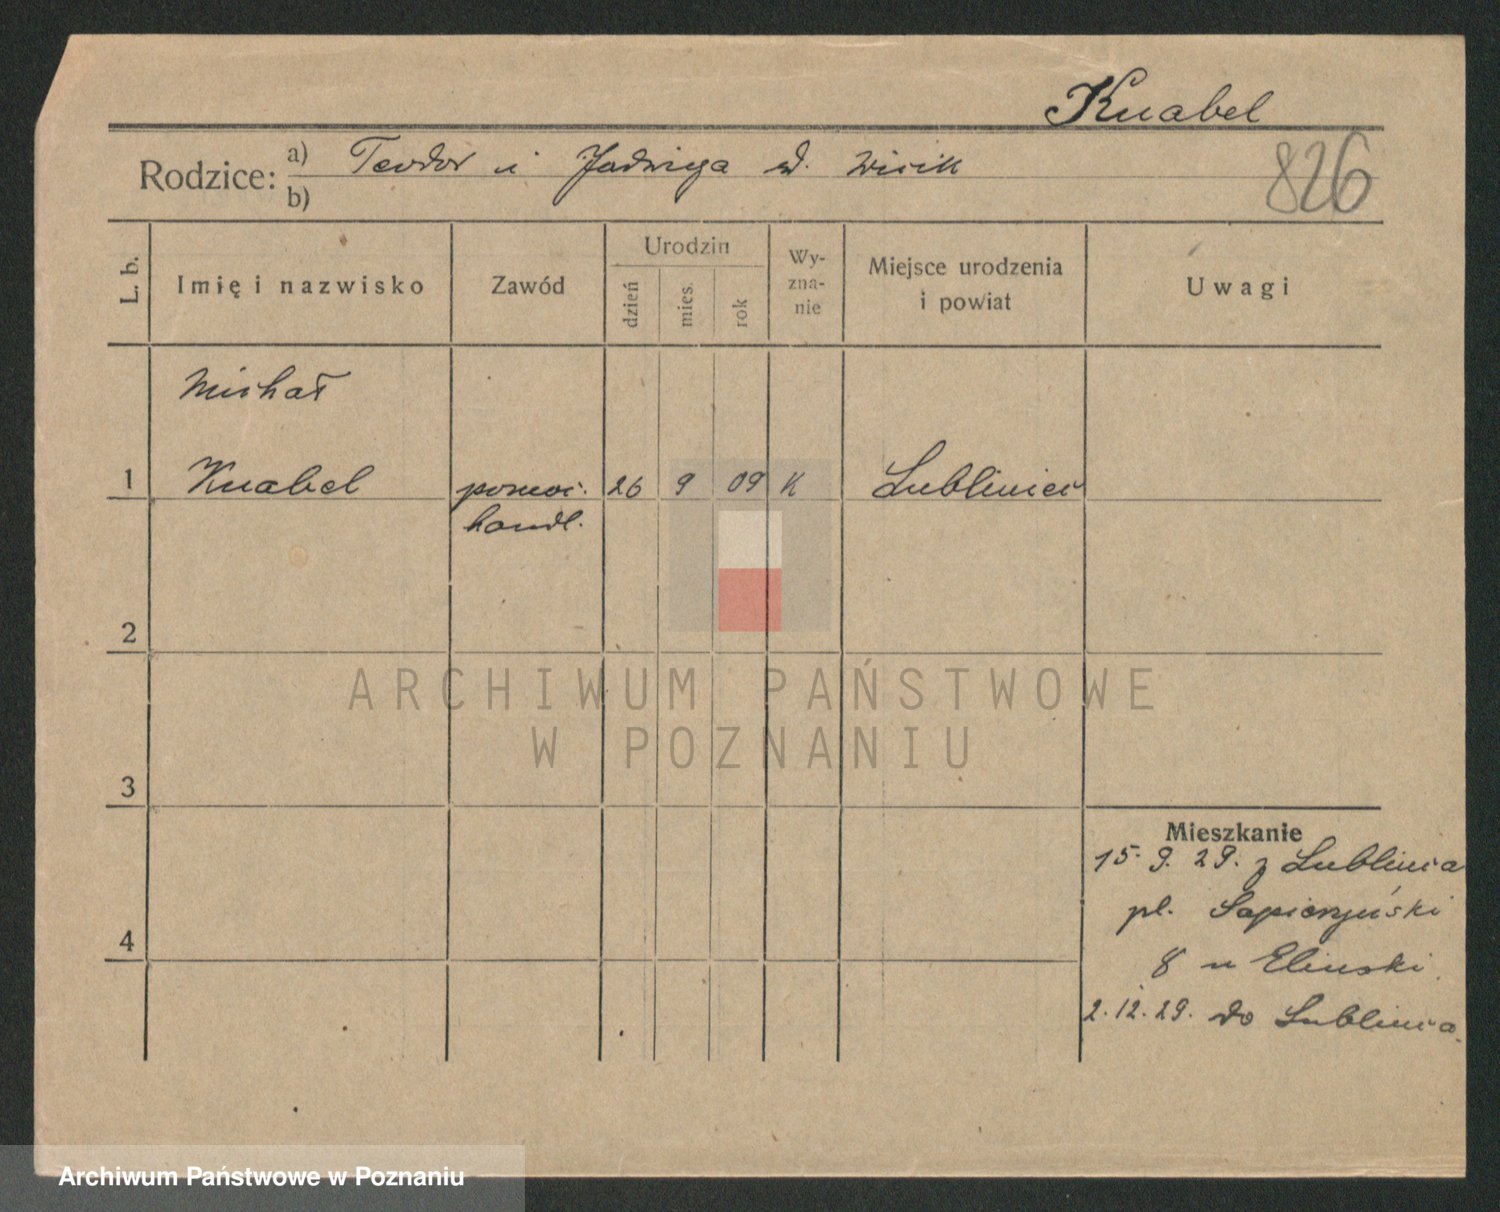 Knabel
Rodzice: a) Teodor i Jadwiga
b)
826
L. b.
Imię i nazwisko
Zawód
Urodzin
dzień
mies.
rok
Wy-
zna-
nie
Miejsce urodzenia
i powiat
Uwagi
Michał
1 Knabel pomoc. 26 9 09 K Lubliniec
handl.
2
3
4
Mieszkanie
15. 9. 29. z Lublińca
pl. Sapieżyński
8 u Elinski
2. 12. 29. do Lublińca.
ARCHIWUM PAŃSTWOWE
W POZNANIU
Archiwum Państwowe w Poznaniu